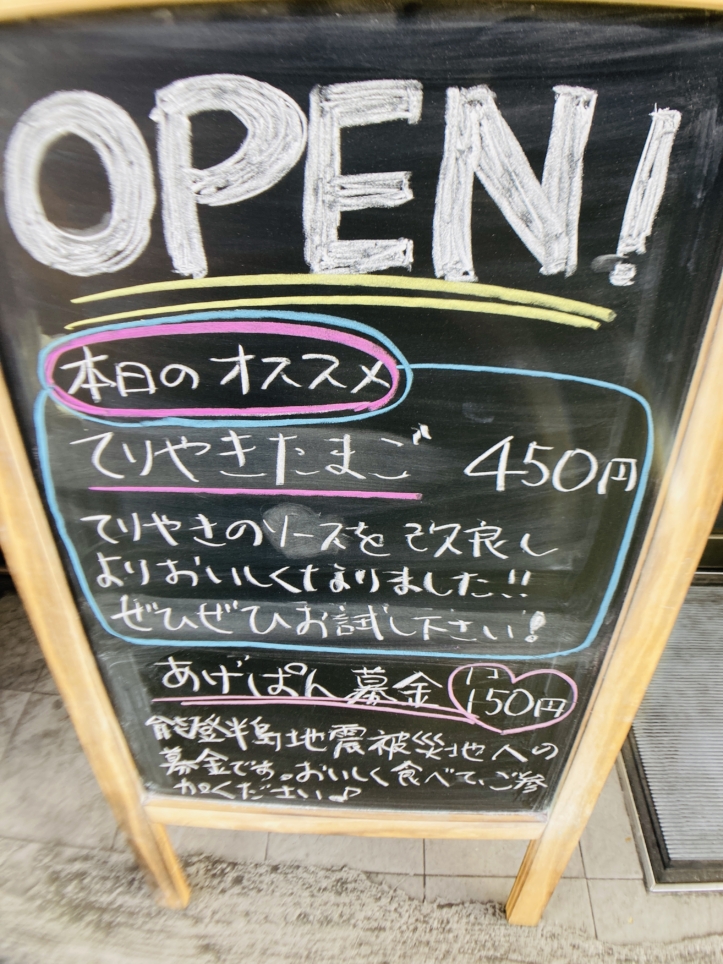 OPEN!
本日のオススメ
てりやきたまご 450円
てりやきのソースを改良し
よりおいしくなりました!!
ぜひぜひお試し下さい!
あげぱん募金 1コ150円
能登半島地震被災地への
募金です。おいしく食べて、ご参
加ください♪